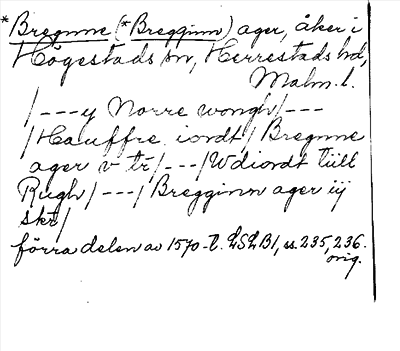 *Bregnne (*Bregginn) ager, åker i
Högestads sn, Herrestads hd,
Malm. l.
/---y Norre wongh/---
/Hauffre iordt/ Bregnne
ager v tr/---/Wdiordt tiill
Rugh/---/Bregginn ager iij
skr/
förra delen av 1570-t. LSLB1, ss. 235, 236.
orig.